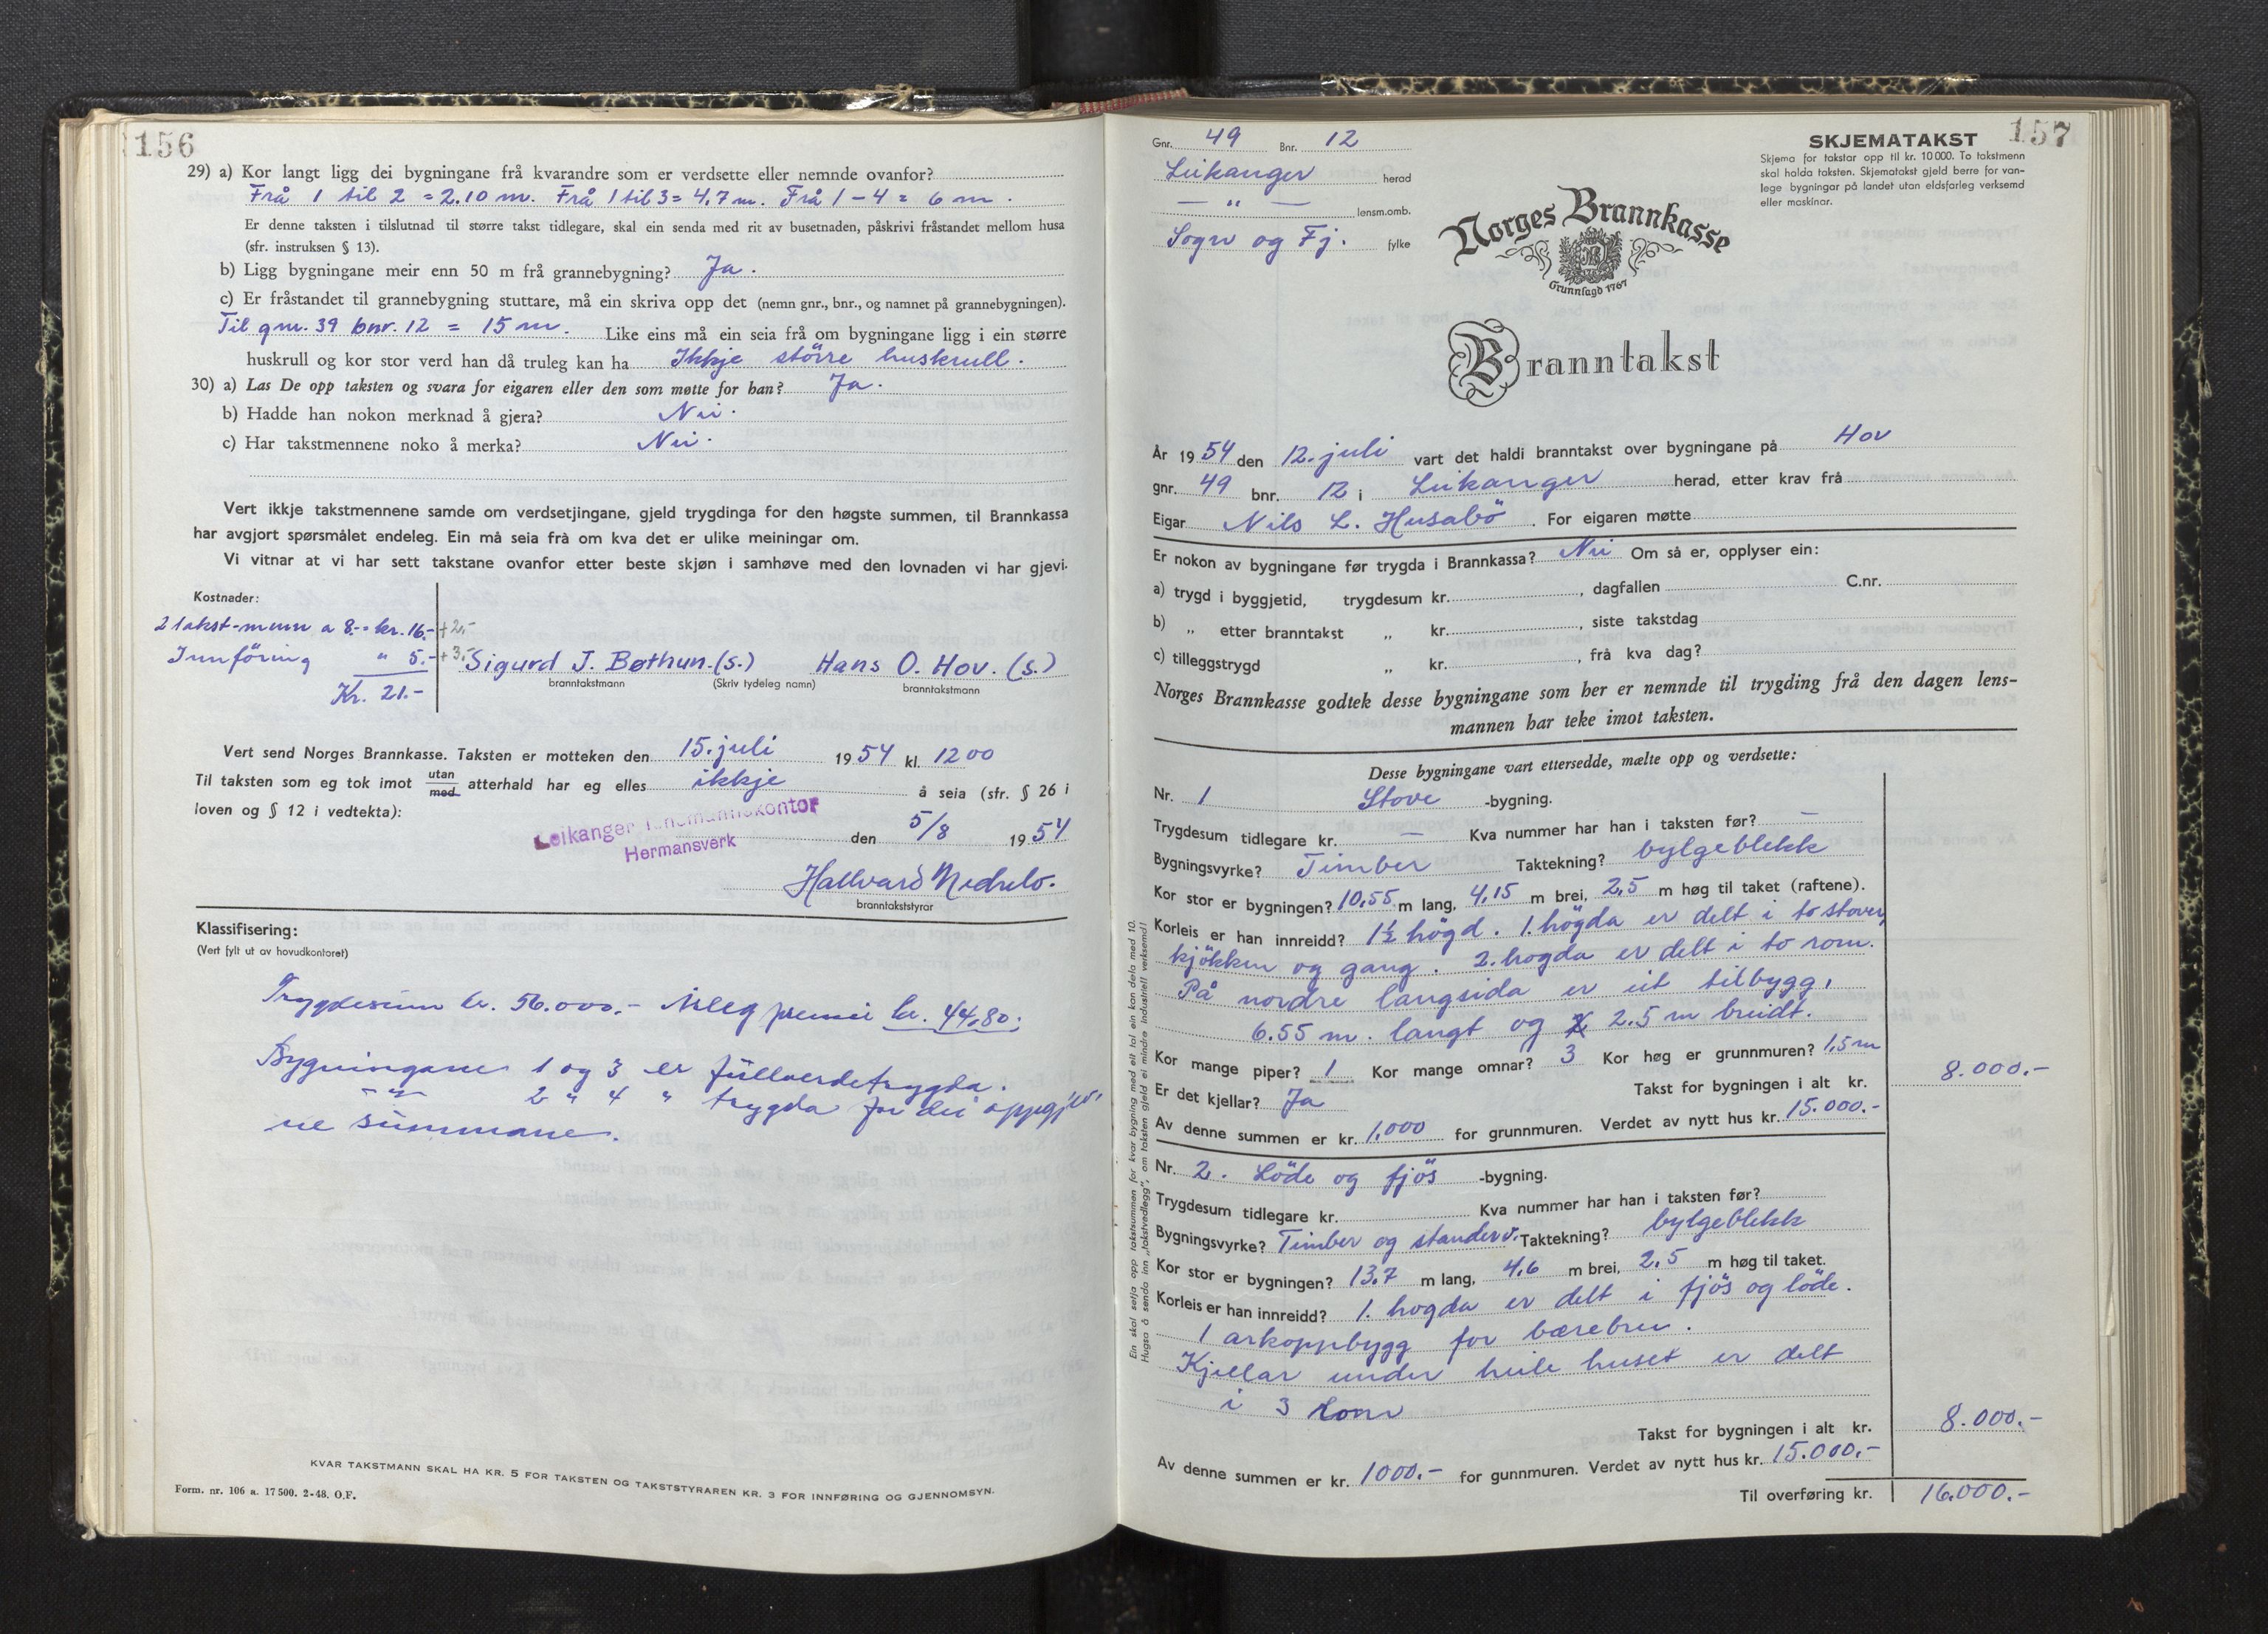 156
29) a) Kor langt ligg dei bygningane frå kvarandre som er verdsette eller nemnde ovanfor?
Frå 1 til 2 = 2.10 m. Frå 1 til 3 = 4,7 m. Frå 1 - 4 = 6 m.
Er denne taksten i tilslutnad til større takst tidlegare, skal ein senda med rit av busetnaden, påskrivi fråstandet mellom husa
(sfr. instruksen § 13).
b) Ligg bygningane meir enn 50 m frå grannebygning? Ja.
c) Er fråstandet til grannebygning stuttare, må ein skriva opp det (nemn gnr., bnr., og namnet på grannebygningen).
Til gnr. 39 bnr. 12 = 15 m. Like eins må ein seia frå om bygningane ligg i ein større
huskrull og kor stor verd han då truleg kan ha Ikkje större huskrull.
30) a) Las De opp taksten og svara for eigaren eller den som møtte for han? Ja.
b) Hadde han nokon merknad å gjera? Nei.
c) Har takstmennene noko å merka? Nei.
Vert ikkje takstmennene samde om verdsetjingane, gjeld trygdinga for den høgste summen, til Brannkassa
har avgjort spørsmålet endeleg. Ein må seia frà om kva det er ulike meiningar om.
Vi vitnar at vi har sett takstane ovanfor etter beste skjøn i samhøve med den lovnaden vi har gjevi.
Kostnader:
2 takst-menn a 8.- kr. 16.- +2,-
Innföring " 5.- +3.-
Kr. 21.-
Sigurd J. Bøthun. (s.) Hans O. Hov. (s.)
branntakstmann (Skriv tydeleg namn) branntakstmann
Vert send Norges Brannkasse. Taksten er motteken den 15. juli 1954 kl. 12 00
Til taksten som eg tok imot utan med atterhald har eg elles ikkje å seia (sfr. § 26 i
loven og § 12 i vedtekta):
Leikanger lensmannskontor
Hermansverk
den 5/8 1954
Hallvard Nedrelo.
branntakststyrar
Klassifisering:
(Vert fylt ut av hovudkontoret)
Trygdesum kr. 56.000.- Årleg premie kr. 44,80.
Bygningane 1 og 3 er fullverdetrygda.
- " - 2 " 4 " trygda for dei oppgjev-
ne summane.
KVAR TAKSTMANN SKAL HA KR. 5 FOR TAKSTEN OG TAKSTSTYRAREN KR. 3 FOR INNFØRING OG GJENNOMSYN.
Form. nr. 106 a. 17 500. 2-48. O.F.
157
Gnr. 49 Bnr. 12
Leikanger herad
— " — lensm.omb.
Sogn og Fj. fylke
SKJEMATAKST
Skjema for takstar opp til kr. 10 000. To takstmenn
skal halda taksten. Skjematakst gjeld berre for van-
lege bygningar på landet utan eldsfarleg verksemd
eller maskinar.
Norges Brannkasse
Grunnlagd 1767
Branntakst
År 1954 den 12. juli vart det haldi branntakst over bygningane på Hov
gnr. 49 bnr. 12 i Leikanger herad, etter krav frå
Eigar Nils L. Husabö. For eigaren møtte
Er nokon av bygningane før trygda i Brannkassa? Nei Om så er, opplyser ein:
a) trygd i byggjetid, trygdesum kr. , dagfallen C.nr.
b) „ etter branntakst „ kr. , siste takstdag
c) tilleggstrygd „ kr. , frå kva dag?
Norges Brannkasse godtek desse bygningane som her er nemnde til trygding frå den dagen lens-
mannen har teke imot taksten.
Desse bygningane vart ettersedde, mælte opp og verdsette:
Nr. 1 Stove -bygning.
Trygdesum tidlegare kr. — Kva nummer har han i taksten før? —
Bygningsvyrke? Timber Taktekning? bylgeblekk
Kor stor er bygningen? 10,55 m lang, 4,15 m brei, 2,5 m høg til taket (raftene).
Korleis er han innreidd? 1½ högd. 1. högda er delt i to stover,
kjökken og gang. 2. hogda er delt i to rom.
På nordre langsida er eit tilbygg,
6.55 m. langt og 2.5 m breidt.
Kor mange piper? 1 Kor mange omnar? 3 Kor høg er grunnmuren? 1,5 m
Er det kjellar? Ja Takst for bygningen i alt kr. 8.000.-
Av denne summen er kr. 1.000 for grunnmuren. Verdet av nytt hus kr. 15.000.-
Nr. 2. Löde og fjös -bygning.
Trygdesum tidlegare kr. Kva nummer har han i taksten før?
Bygningsvyrke? Timber og standerv. Taktekning? bylgeblekk
Kor stor er bygningen? 13,7 m lang, 4,6 m brei, 2,5 m høg til taket.
Korleis er han innreidd? 1. hogda er delt i fjös og löde.
1 arkoppbygg for bærebru.
Kjellar under heile huset er delt
i 3 rom
Takst for bygningen i alt kr. 8.000.-
Av denne summen er kr. 1000.- for gunnmuren. Verdet av nytt hus kr. 15.000.-
Til overføring kr. 16.000.-
Ein skal setja opp takstsummen for kvar bygning med eit tal ein kan dela med 10.
Hugsa å senda inn „takstvedlegg", om taksten gjeld ei mindre industriell verksemd!